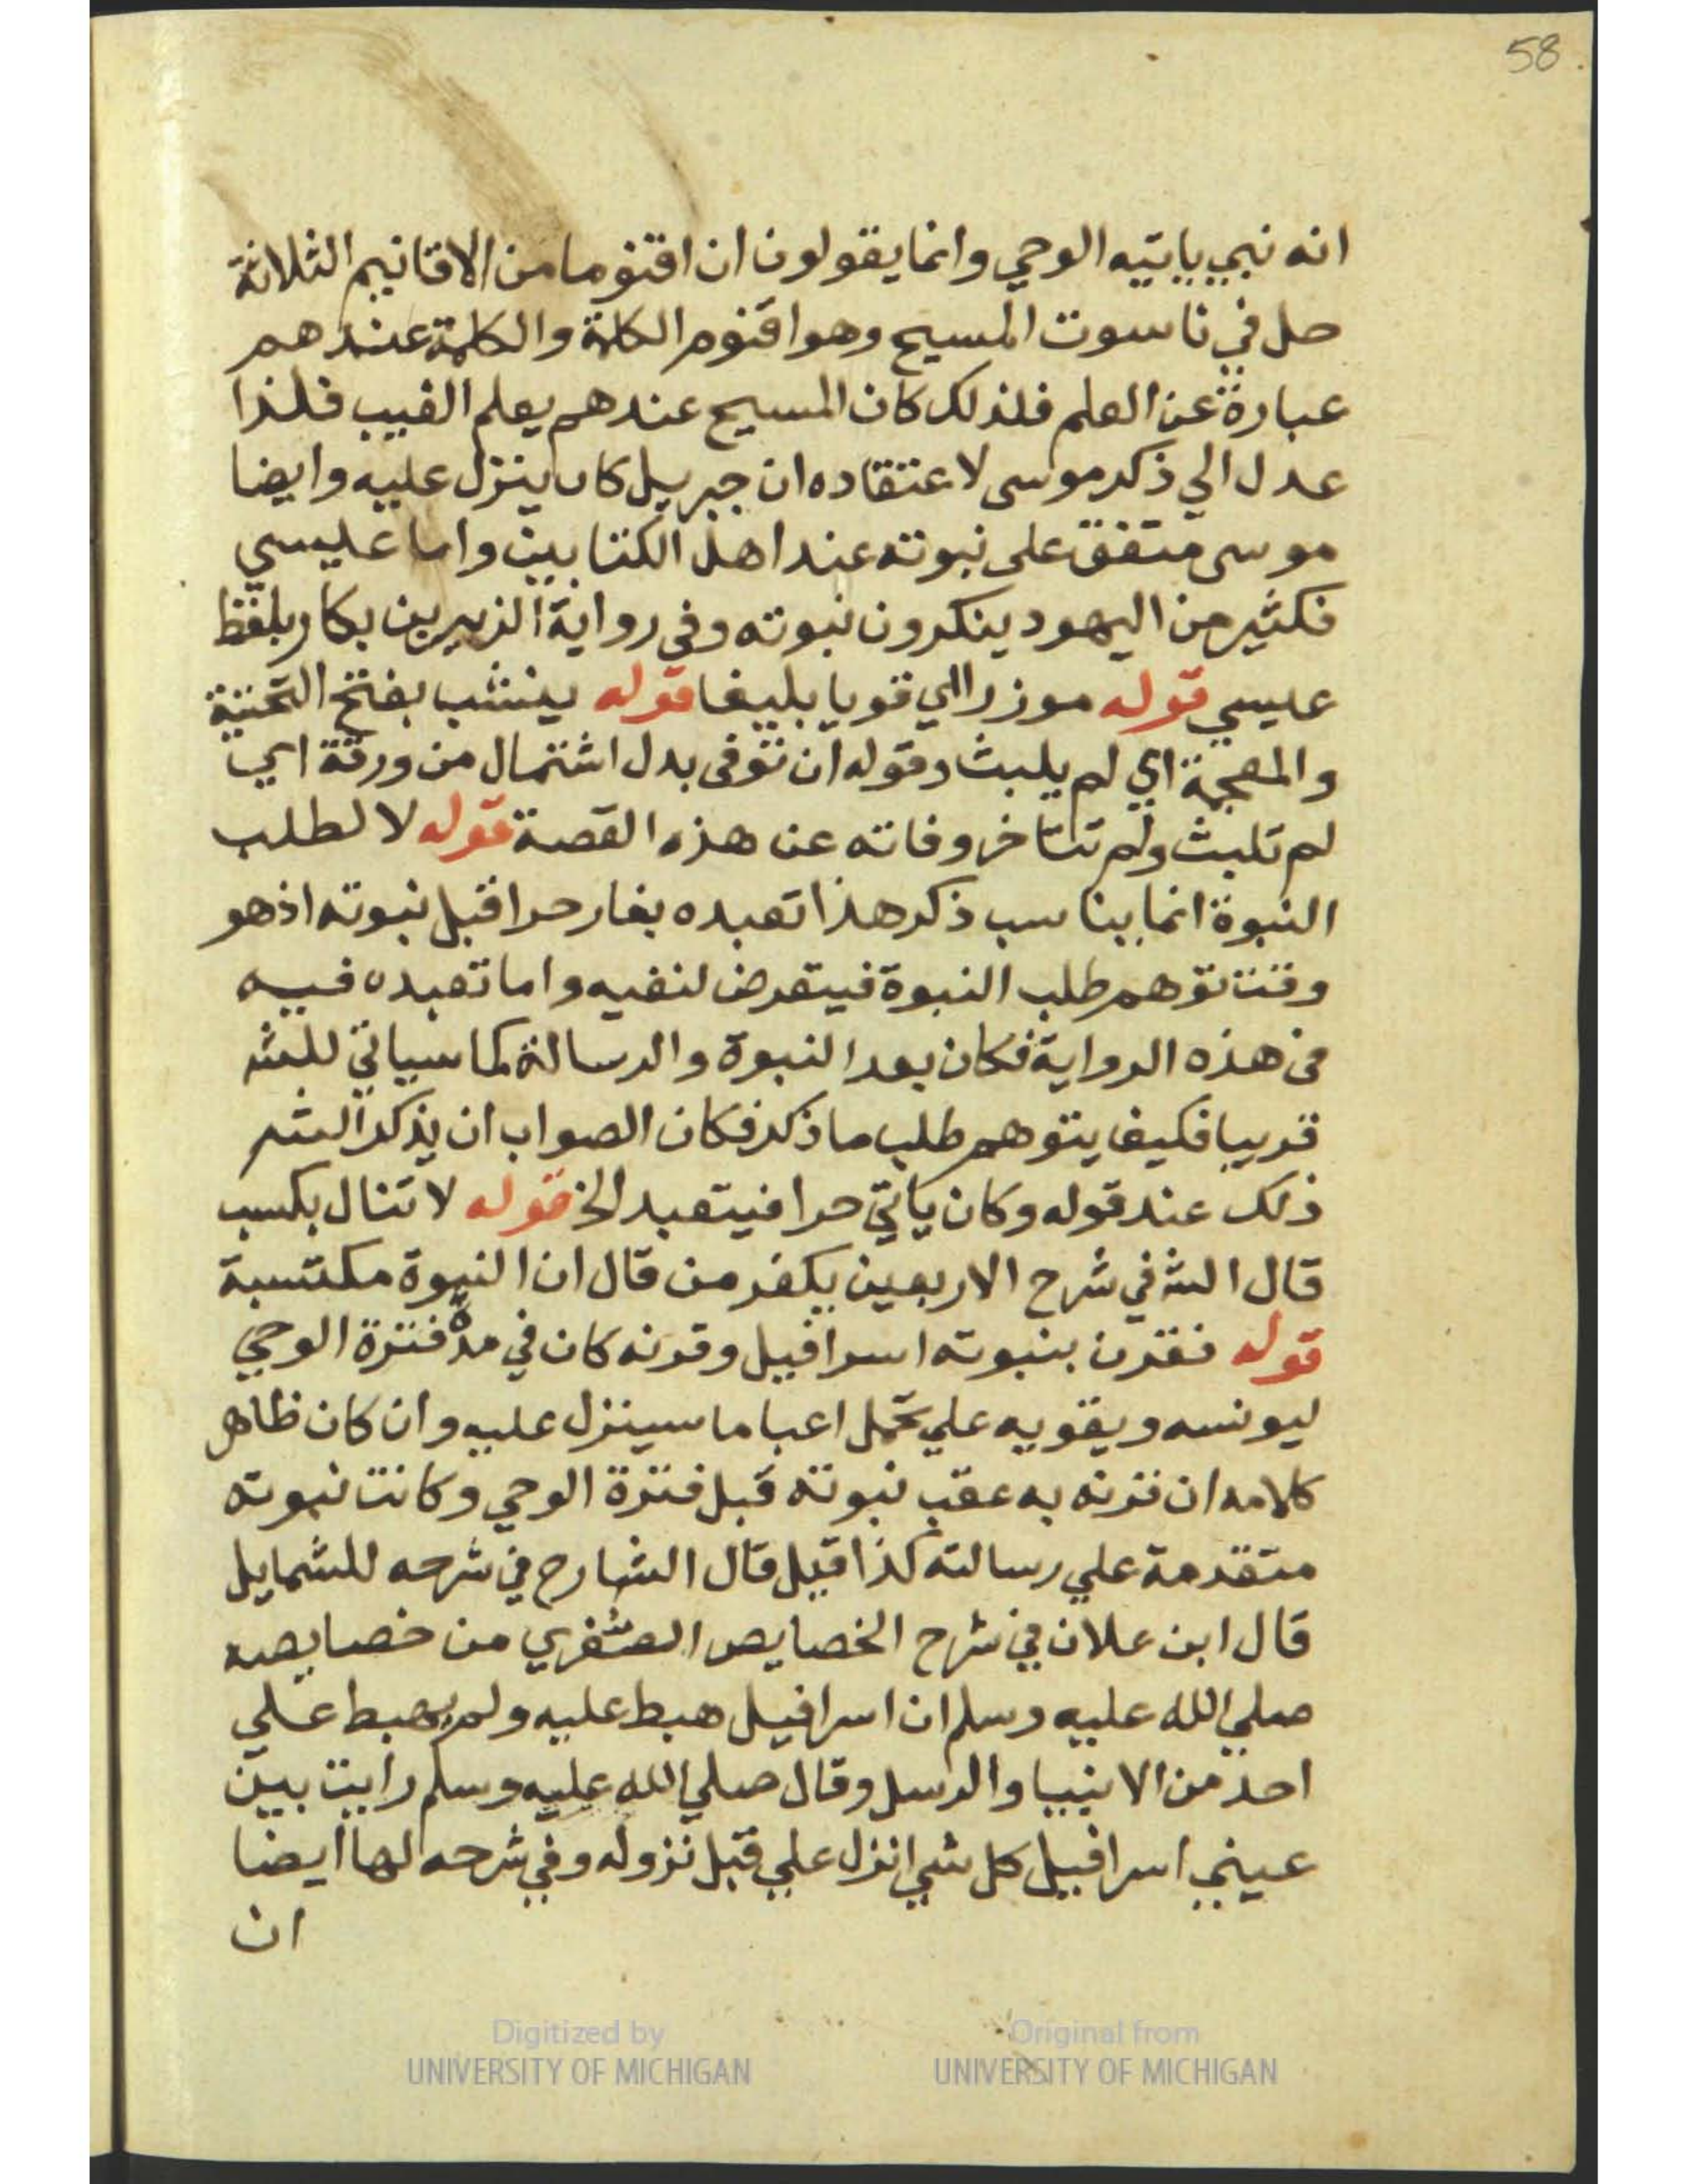 58
انه نبي ياتيه الوحي وانما يقولون ان اقنوما من الاقانيم الثلاثة
حل في ناسوت المسيح وهو اقنوم الكلمة والكلمة عندهم
عبارة عن العلم فلذلك كان المسيح عندهم يعلم الغيب فلذا
عدل الي ذكر موسى لاعتقاده ان جبريل كان ينزل عليه وايضا
موسى متفق على نبوته عند اهل الكتابين واما عيسي
فكثير من اليهود ينكرون نبوته وفى رواية الزبير بن بكار بلفظ
عيسي قوله موزرا اي قويا بليغا قوله ينشب بفتح التحتية
والمعجمة اي لم يلبث وقوله ان توفى بدل اشتمال من ورقة اي
لم تلبث ولم تتاخر وفاته عن هذه القصة قوله لا لطلب
النبوة انما يناسب ذكر هذا تعبده بغار حرا قبل نبوته اذ هو
وقت توهم طلب النبوة فيتعرض لنفيه واما تعبده فيه
في هذه الرواية فكان بعد النبوة والرسالة كما سياتي للش
قريبا فكيف يتوهم طلب ما ذكر فكان الصواب ان يذكر الش
ذلك عند قوله وكان ياتي حرا فيتعبد الخ قوله لا تنال بكسب
قال الش في شرح الاربعين يكفر من قال ان النبوة مكتسبة
قوله فقرن بنبوته اسرافيل وقرنه كان في مدة فترة الوحي
ليونسه ويقويه علي تحمل اعبا ما سينزل عليه وان كان ظاهر
كلامه ان قرنه به عقب نبوته قبل فترة الوحي وكانت نبوته
متقدمة علي رسالته كذا قيل قال الشارح في شرحه للشمايل
قال ابن علان في شرح الخصايص الصغري من خصايصه
صلي الله عليه وسلم ان اسرافيل هبط عليه ولم يهبط علي
احد من الانبيا والرسل وقال صلي الله عليه وسلم رايت بين
عيني اسرافيل كل شي انزل علي قبل نزوله وفي شرحه لها ايضا
ان
Digitized by
UNIVERSITY OF MICHIGAN
Original from
UNIVERSITY OF MICHIGAN